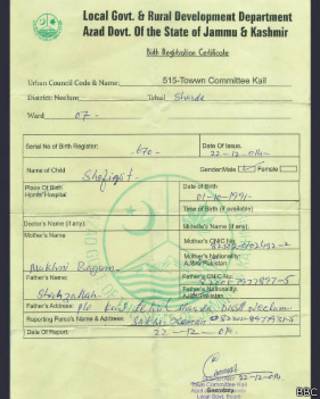 Local Govt. & Rural Development Department
Azad Dovt. Of the State of Jammu & Kashmir
Birth Registration Certificate
Urban Council Code & Name: 515-Towwn Committee Kail
District: Neelum Tehsil Sharda
Ward 07-
Serial No of Birth Register: 670- Date Of Issue.
22-12-014.
Name of Child Shafiqat. Gender:Male Female
Place Of Birth Date of Birth
Home/Hospital 01-10-1991-
Time of Birth (if available)
Doctor's Name (if any): Midwife's Name (if any):
Mother's Name Mother's CNIC No:
Mother's Nationality:
Makhni Begum AJ&K/Pakistan
Father's Name: Father's CNIC No:
Father's Nationality:
AJ&K/Pakistan
Father's Address: P/o Kail Tehsil Sharda Distt Neelum
Reporting Person's Name & Address:
Date Of Report: 22-12-014.
22-12-014.
Town Committee Kail
Secretary
BBC